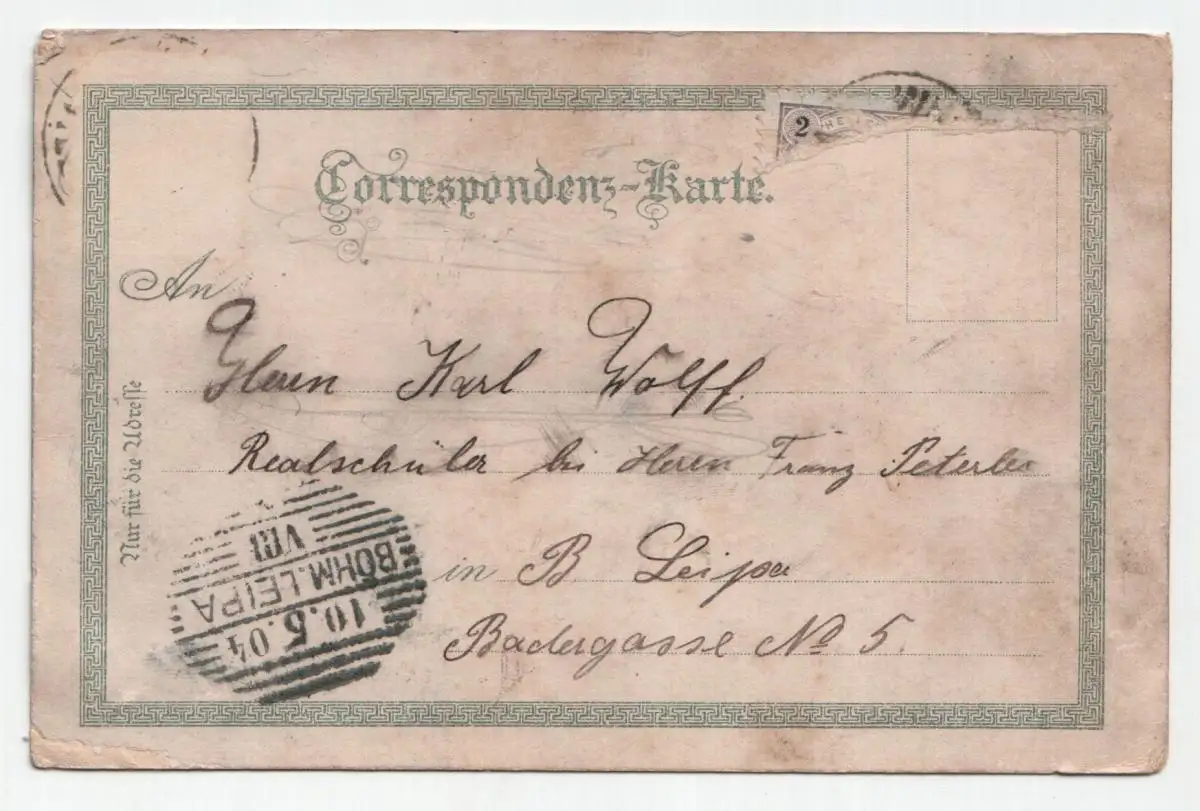 2
Correspondenz-Karte.
An
Herrn Karl Wolff.
Realschüler bei Herrn Franz Peterler
in B Leipa
Badergasse No 5.
Nur für die Adresse
BÖHM. LEIPA
10.5.04
VIII